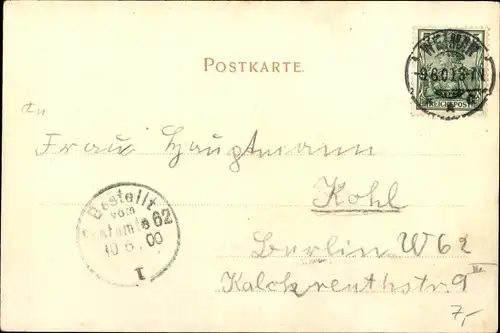 POSTKARTE.
WEIMAR
9.6.00.
REICHSPOST
An
Frau Hauptmann
Kohl
Berlin W 62
Kalckreuthstr. 9 III
Bestellt
vom
Postamte 62
10.6.00
I
7,-